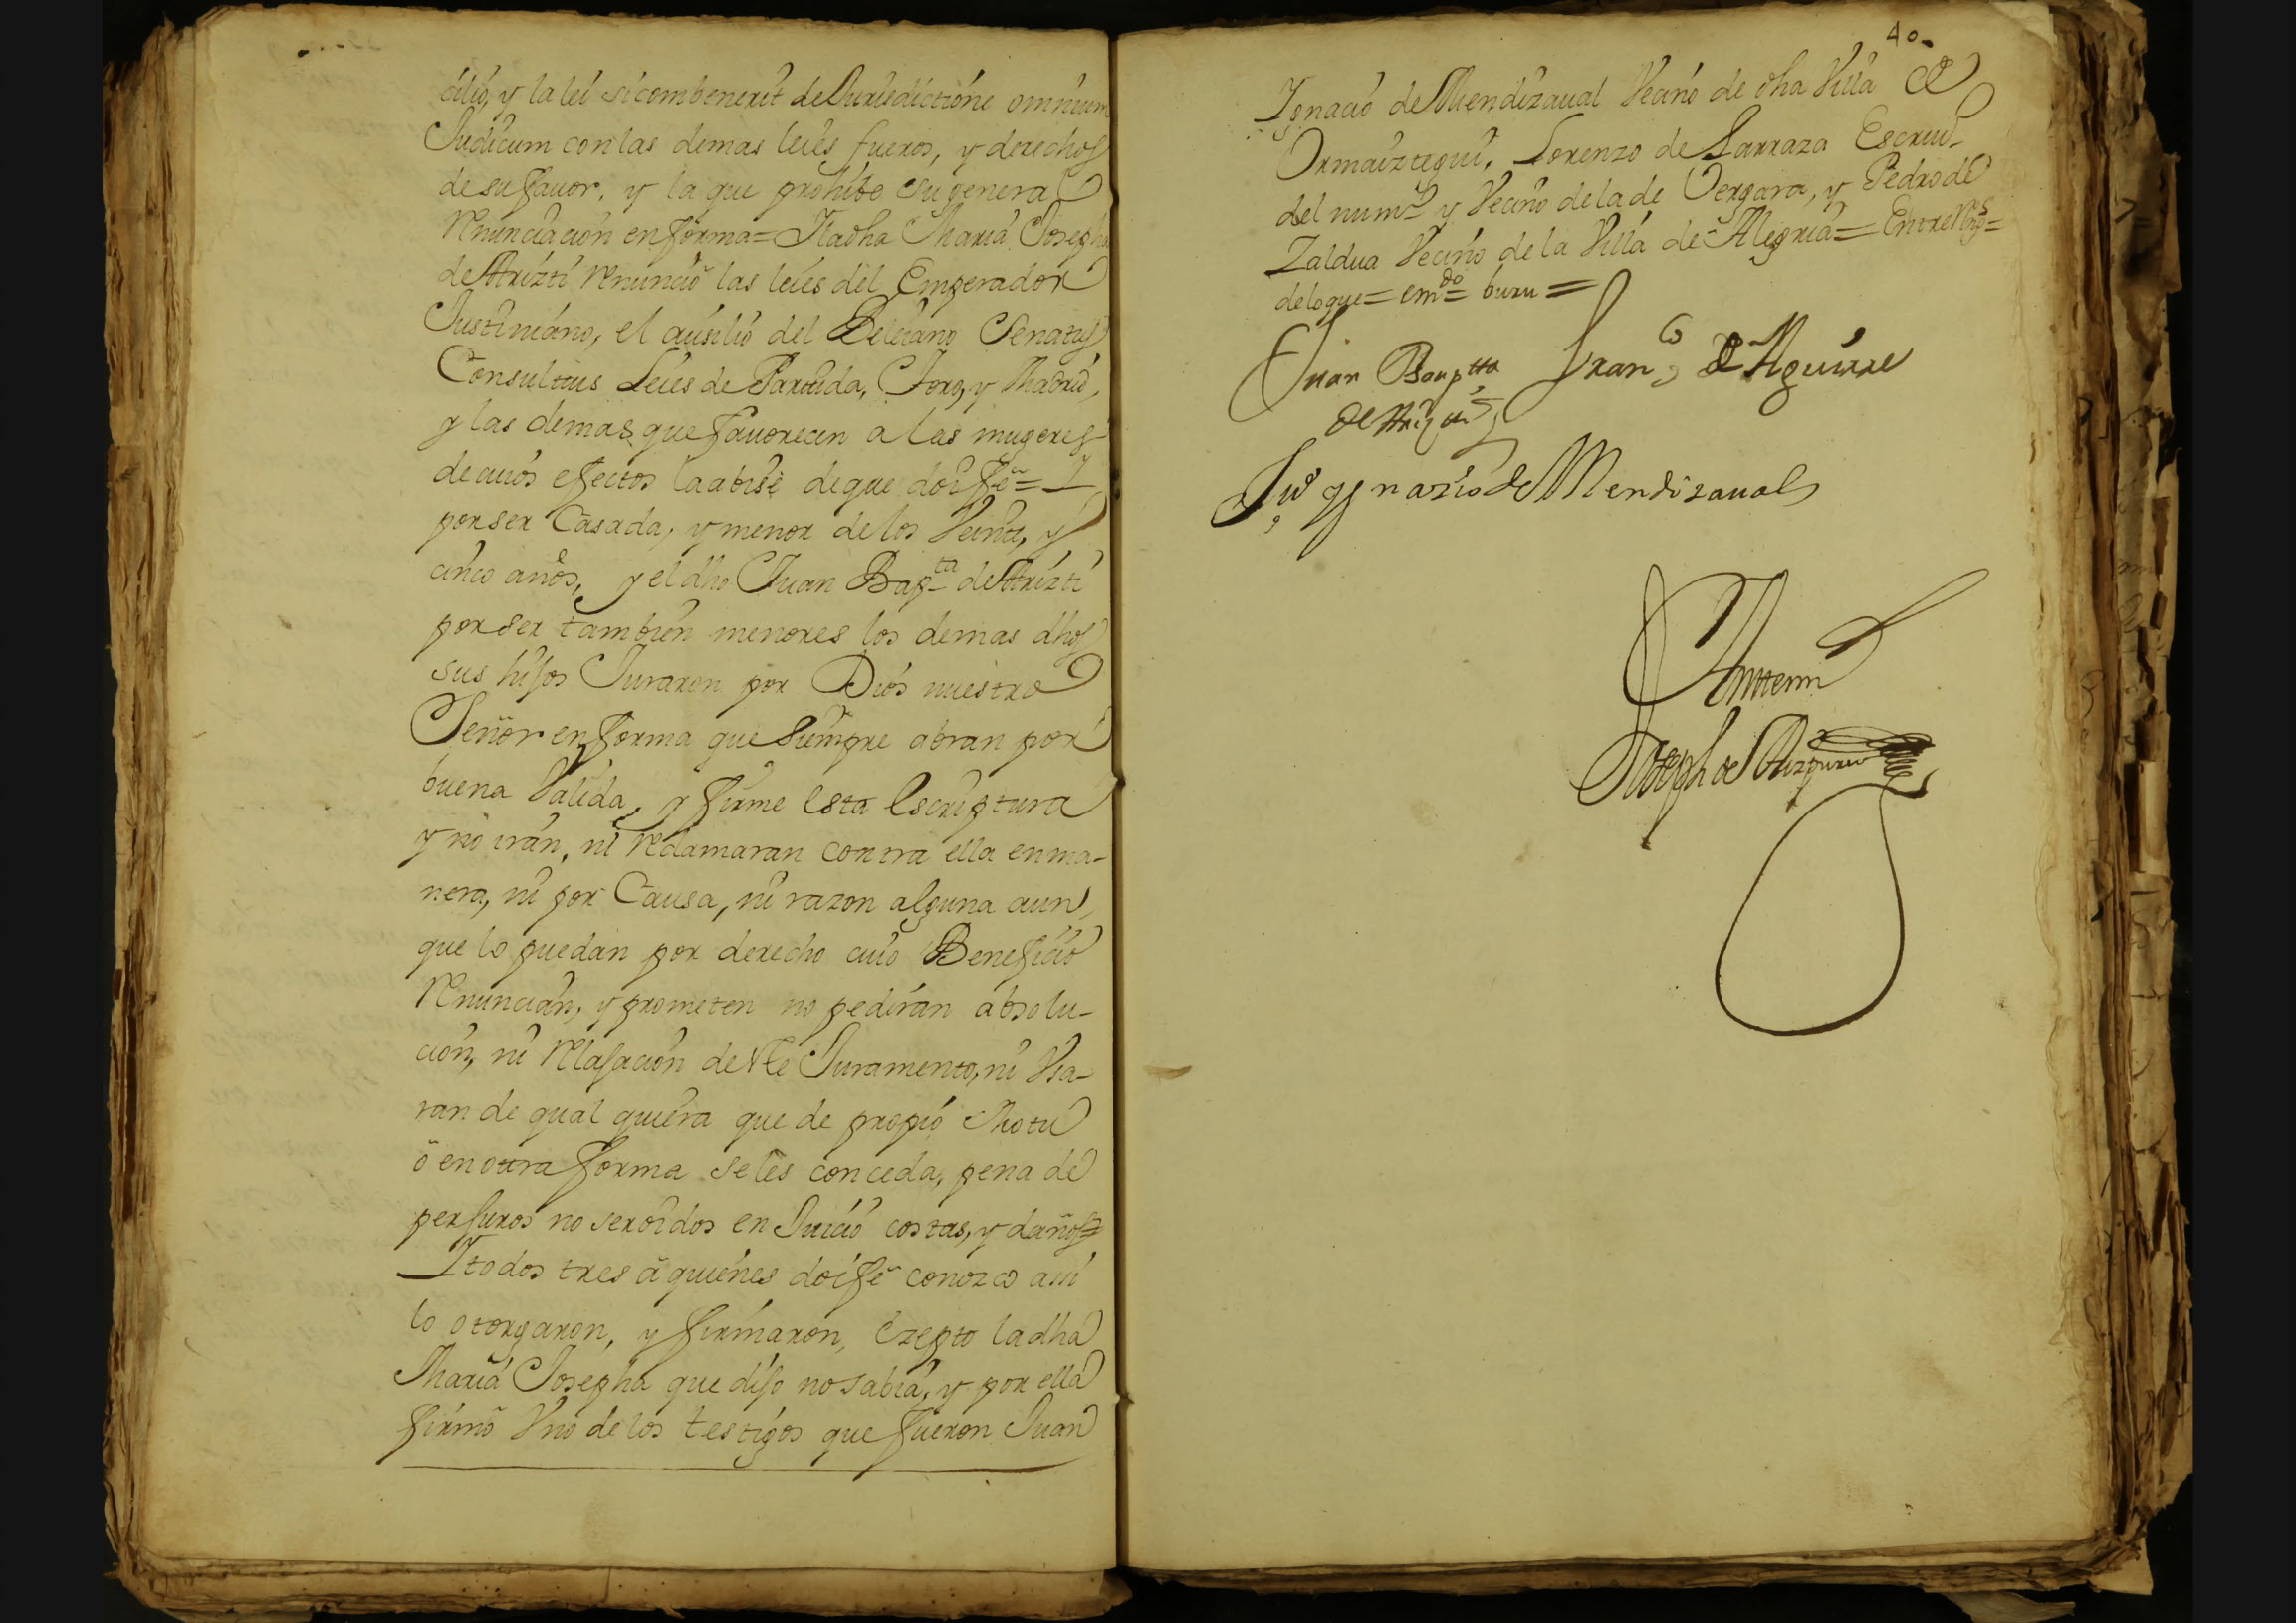 cilio, y la lei si combenerit de Jurisdictione omnium
Judicum con las demas leies fueros, y derechos
de su fauor, y la que prohibe su general
Renunciacion en forma = Y la dha Maria Josepha
de Arizti Renunció las leies del Emperador
Justiniano, el ausilio del Beleiano Senatus
Consultus Leies de Partida, Toro, y Madrid,
y las demas que fauorecen a las mugeres
de cuios efectos la abisé de que doi fee = Y
por ser Casada, y menor de los Veinte, y
cinco años, y el dho Juan Bapta de Arizti
por ser tambien menores los demas dhos
sus hijos Juraron por Dios nuestro
Señor en forma que siempre abran por
buena Valida, y firme esta escriptura
y no iran, ni Reclamaran contra ella en ma-
nera, ni por Causa, ni razon alguna aun
que lo puedan por derecho cuio Beneficio
Renuncian, y prometen no pediran absolu-
cion, ni Relajacion de este Juramento, ni Vsa-
ran de qual quiera que de propio Motu
ò en otra forma se les conceda, pena de
perjuros no ser oidos en Juicio costas, y daños =
Y todos tres à quienes doi fee conozco assi
lo otorgaron, y firmaron, ezepto la dha
Maria Josepha que dijo no sabia, y por ella
firmò Vno de los testigos que fueron Juan
40
Ignacio de Mendizaual Vecino de dha Villa de
Ormaiztegui, Lorenzo de Larraza Escriu-
del num.º y Vecino de la de Vergara, y Pedro de
Zaldua Vecino de la Villa de Alegria = Entre Rengs =
de lo que = emdo = buru =
Juan Bauptta Franco de Aguirre
de Arizti
Ju.º Ygnazio de Mendizaual
Ante mi
Joseph de Aizpuru